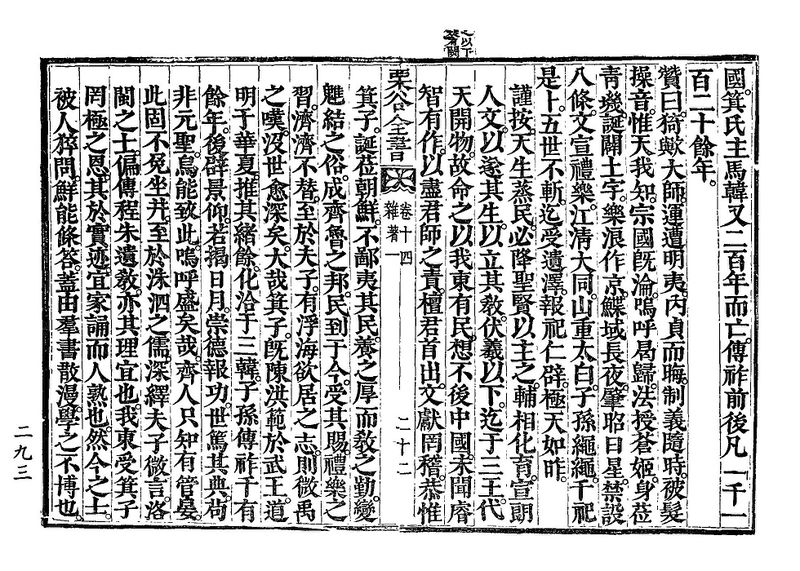 之以下
國箕氏主馬韓又二百年而亡傳祚前後凡一千一
百二十餘年。
贊曰。猗歟大師。運遭明夷。內貞而晦。制義隨時。被髮
操音。惟天我知。宗國旣淪。嗚呼曷歸。法授蒼姬。身莅
靑畿。誕闢土宇。樂浪作京。鰈域長夜。肇昭日星。禁設
八條。文宣禮樂。江淸大同。山重太白。子孫繩繩。千祀
是卜。五世不斬。迄受遺澤。報祀仁辟。極天如昨。
謹按天生蒸民。必降聖賢以主之。輔相化育。宣朗
人文。以遂其生。以立其敎。伏羲以下。迄于三王。代
天開物。故命之以。我東有民。想不後中國。未聞睿
智有作。以盡君師之責。檀君首出。文獻罔稽。恭惟
栗谷全書 卷十四 雜著一 二十二
箕子。誕莅朝鮮。不鄙夷其民。養之厚而敎之勤。變
魋結之俗。成齊魯之邦。民到于今。受其賜。禮樂之
習。濟濟不替。至於夫子。有浮海欲居之志。則微禹
之嘆。沒世愈深矣。大哉箕子。旣陳洪範於武王。道
明于華夏。推其緖餘。化洽于三韓。子孫傳祚千有
餘年。後辟景仰。若揭日月。崇德報功。世篤其典。苟
非元聖。烏能致此。嗚呼盛矣哉。齊人只知有管晏。
此固不免坐井。至於洙泗之儒。深繹夫子微言。洛
閩之士。偏傳程朱遺敎。亦其理宜也。我東受箕子
罔極之恩。其於實迹。宜家誦而人熟也。然今之士。
被人猝問。鮮能條答。蓋由羣書散漫。學之不博也。
二九三